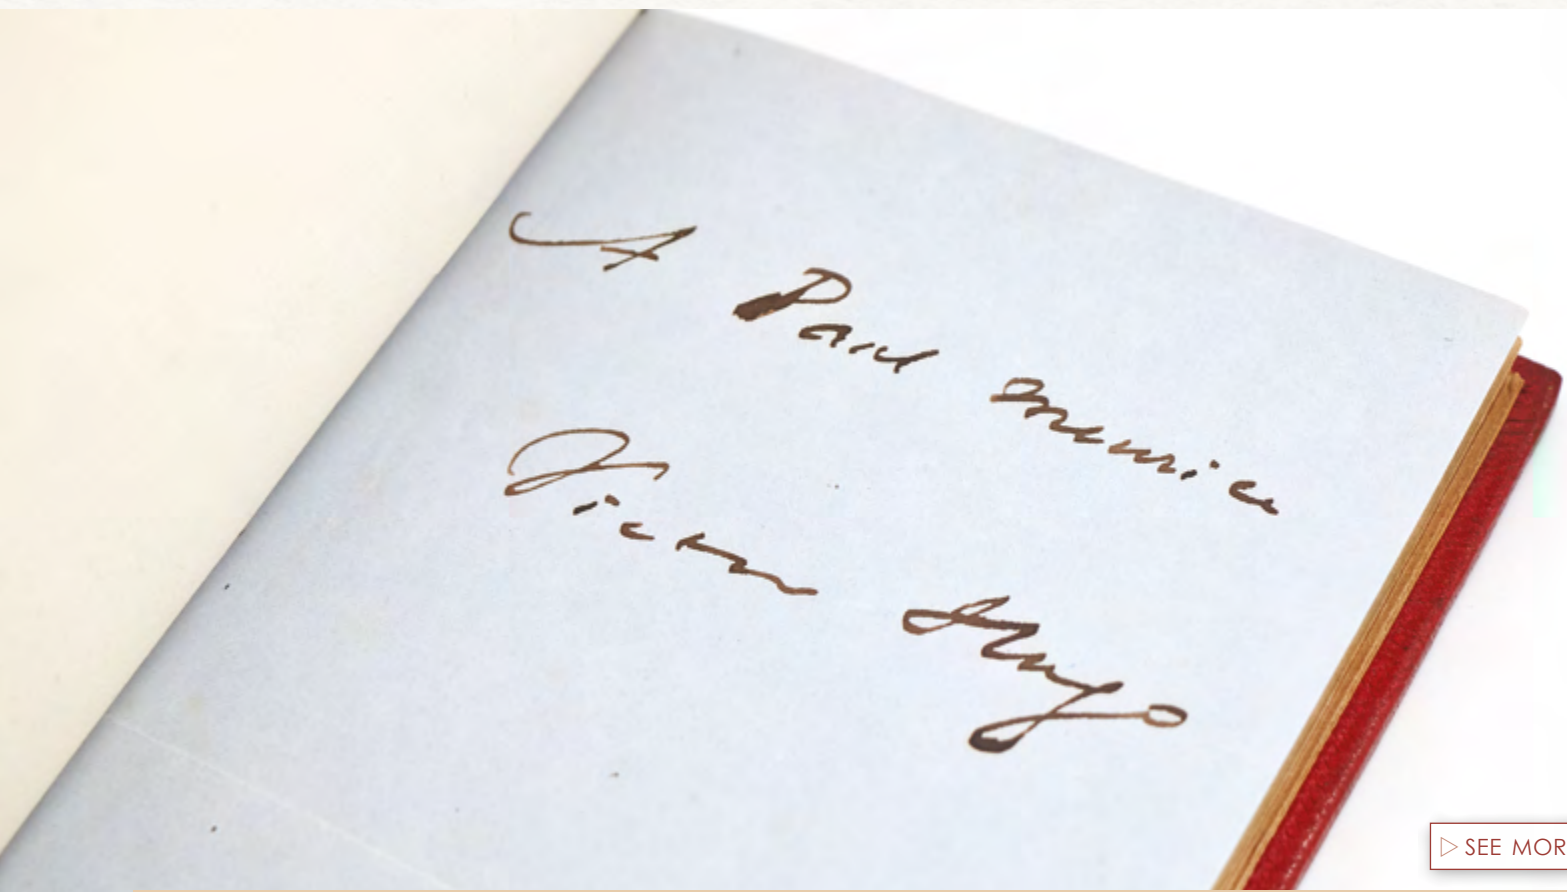 A Paul Meurice
Victor Hugo
▷ SEE MOR